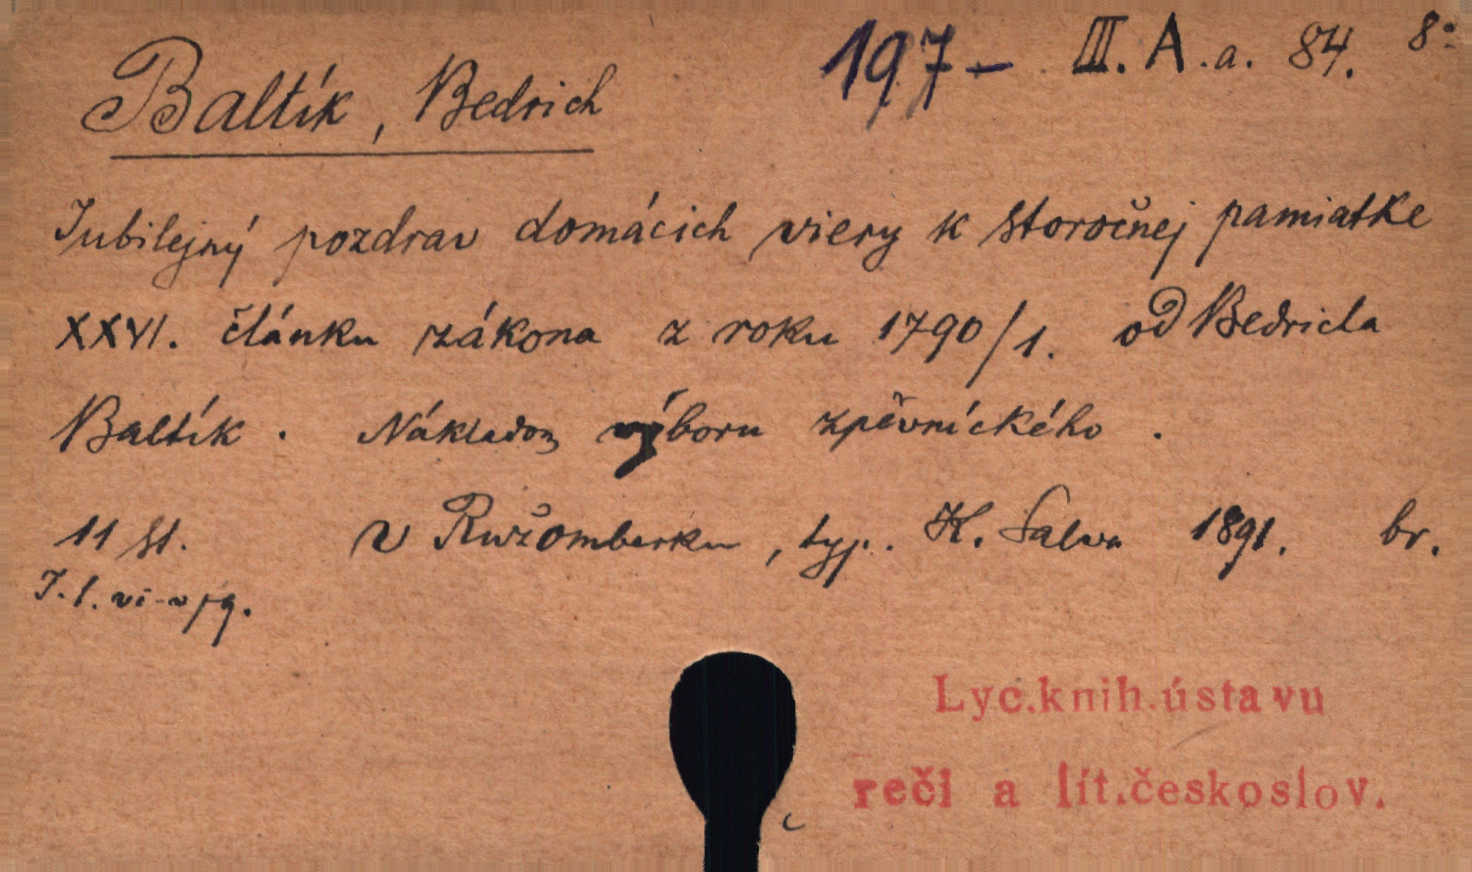 197- III. A.a. 84. 8°
Baltík, Bedrich
Jubilejný pozdrav domácich viery k storočnej pamiatke
XXVI. článku zákona z roku 1790/1. od Bedricha
Baltík. Nákladom výboru zpěvníckého.
11 st. v Ružomberku, typ. K. Salva 1891. br.
Lyc.knih.ústavu
reči a lit.českoslov.